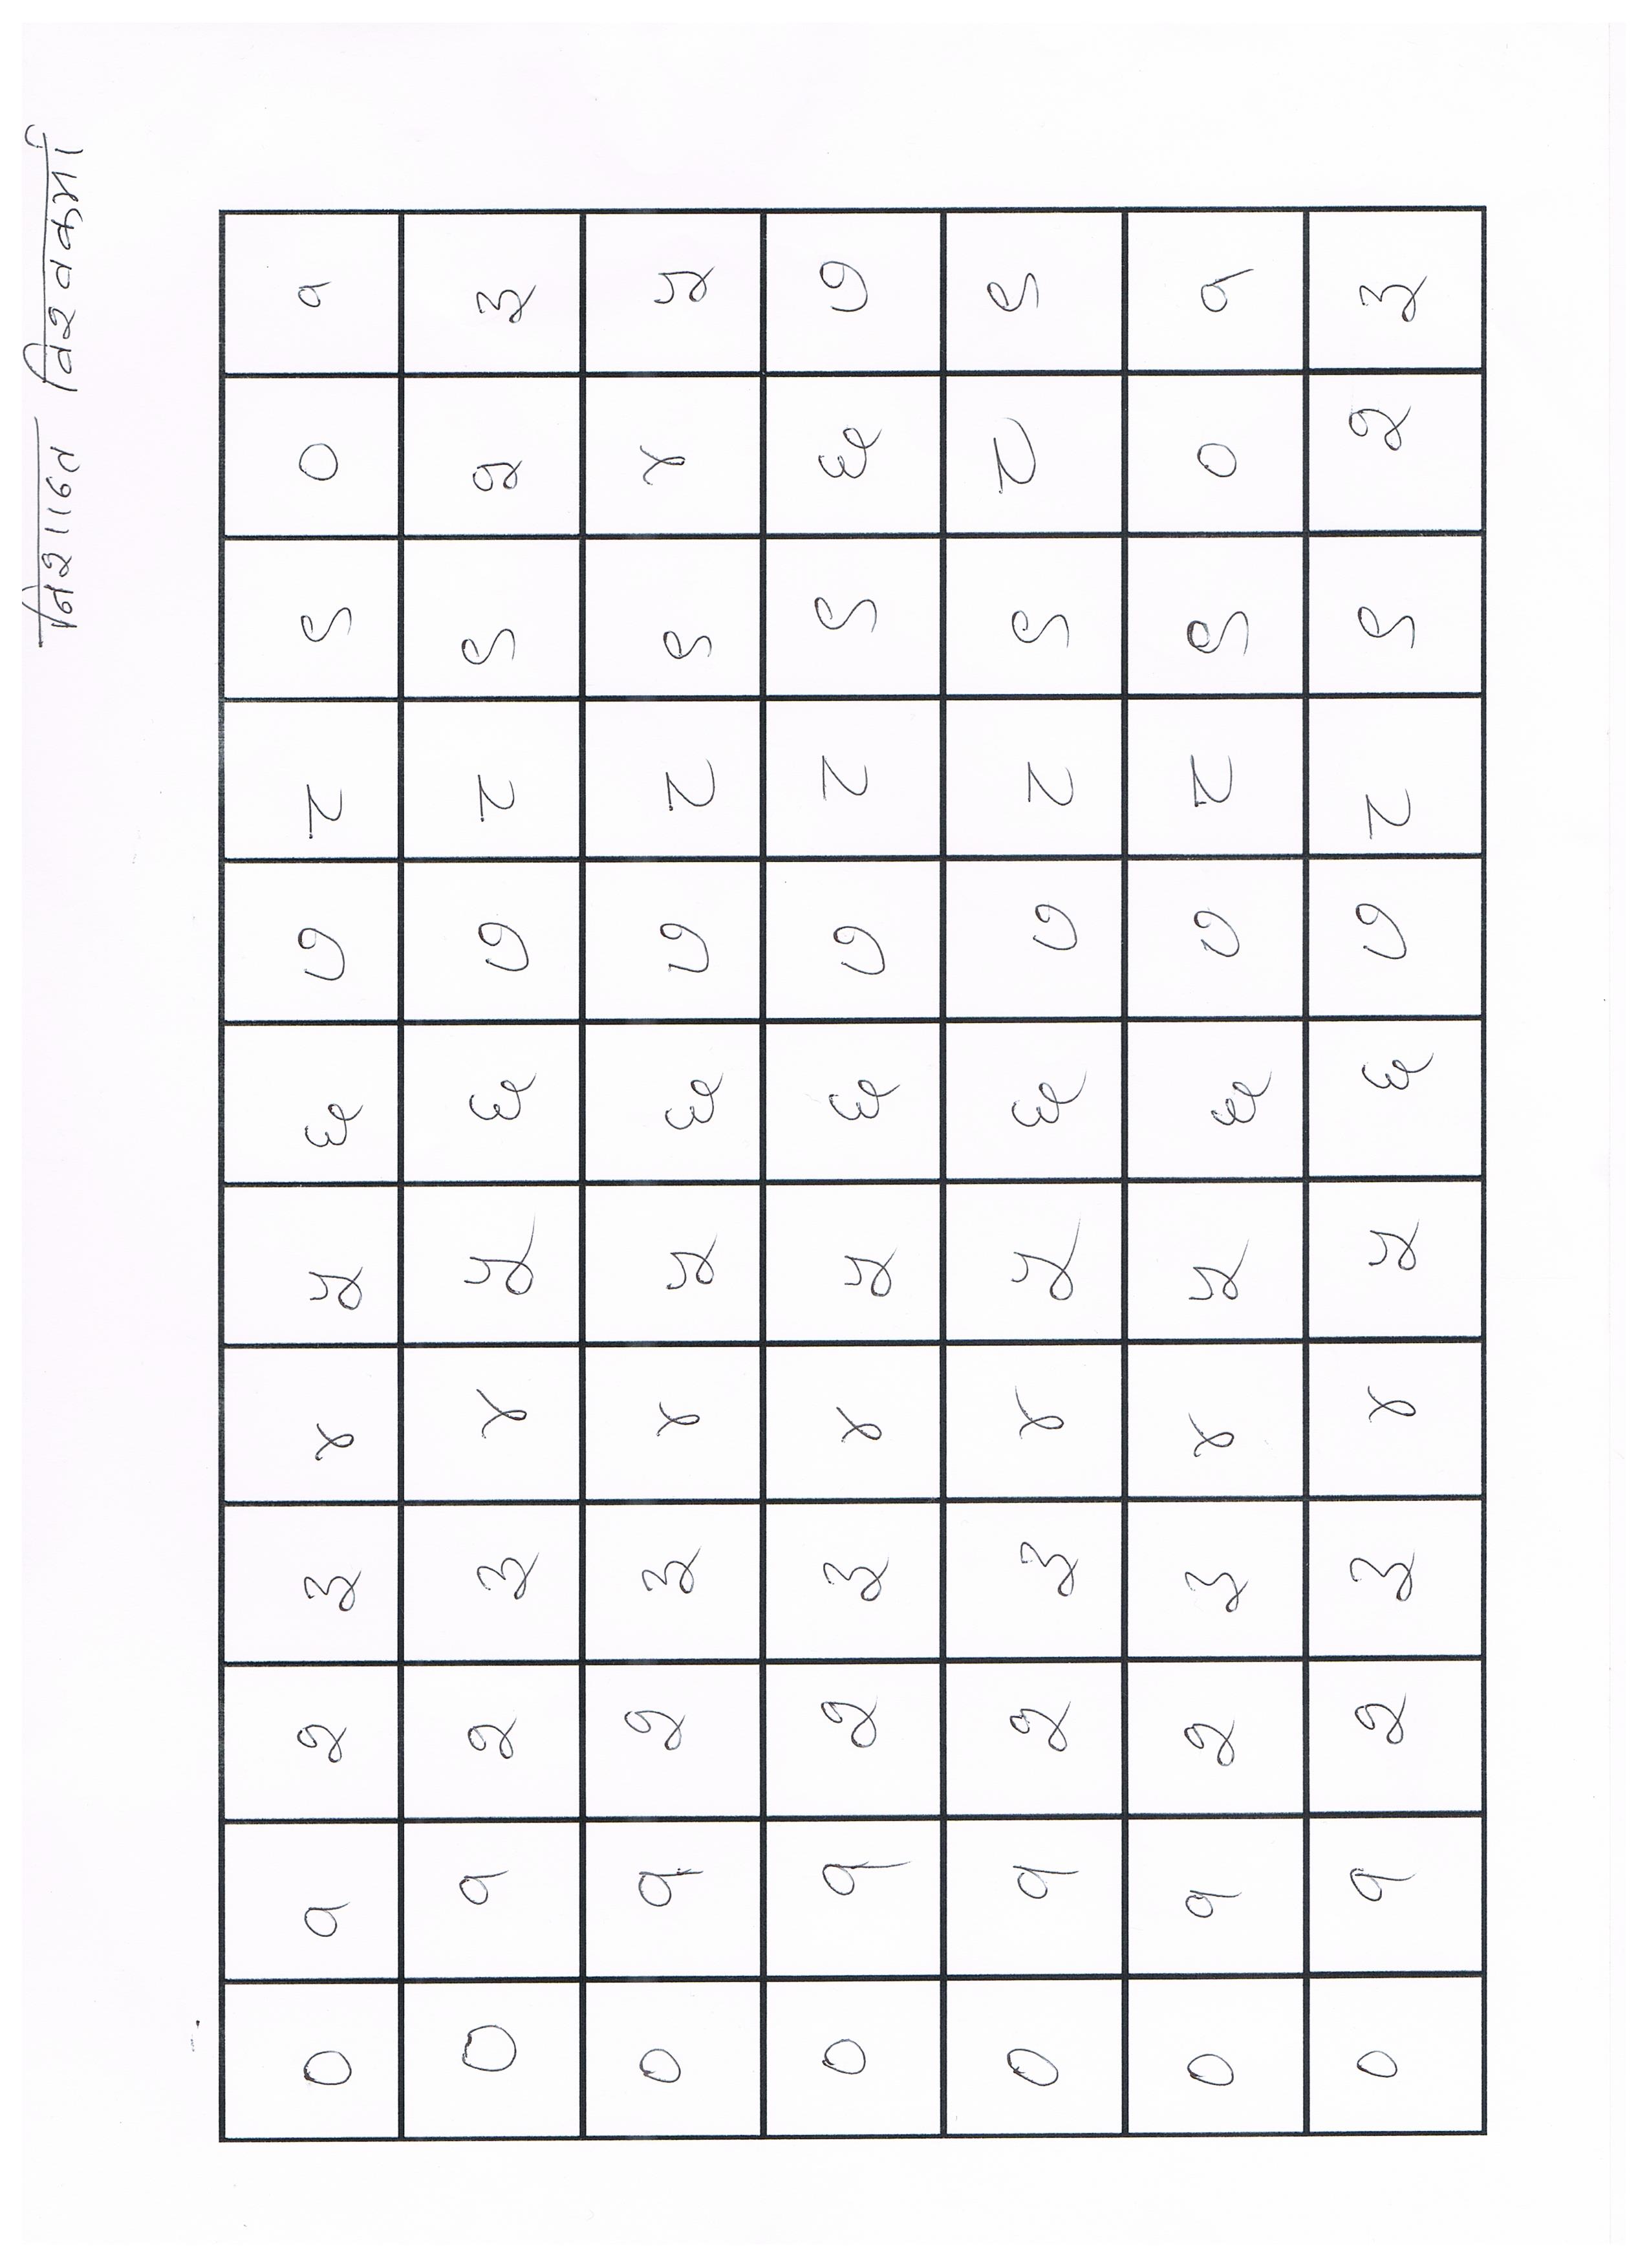 निशान्त विश्वकर्मा
० १ २ ३ ४ ५ ६ ७ ८ ९ ० १
० १ २ ३ ४ ५ ६ ७ ८ ९ २ ३
० १ २ ३ ४ ५ ६ ७ ८ ९ ४ ५
० १ २ ३ ४ ५ ६ ७ ८ ९ ६ ७
० १ २ ३ ४ ५ ६ ७ ८ ९ ८ ९
० १ २ ३ ४ ५ ६ ७ ८ ९ ० १
० १ २ ३ ४ ५ ६ ७ ८ ९ २ ३